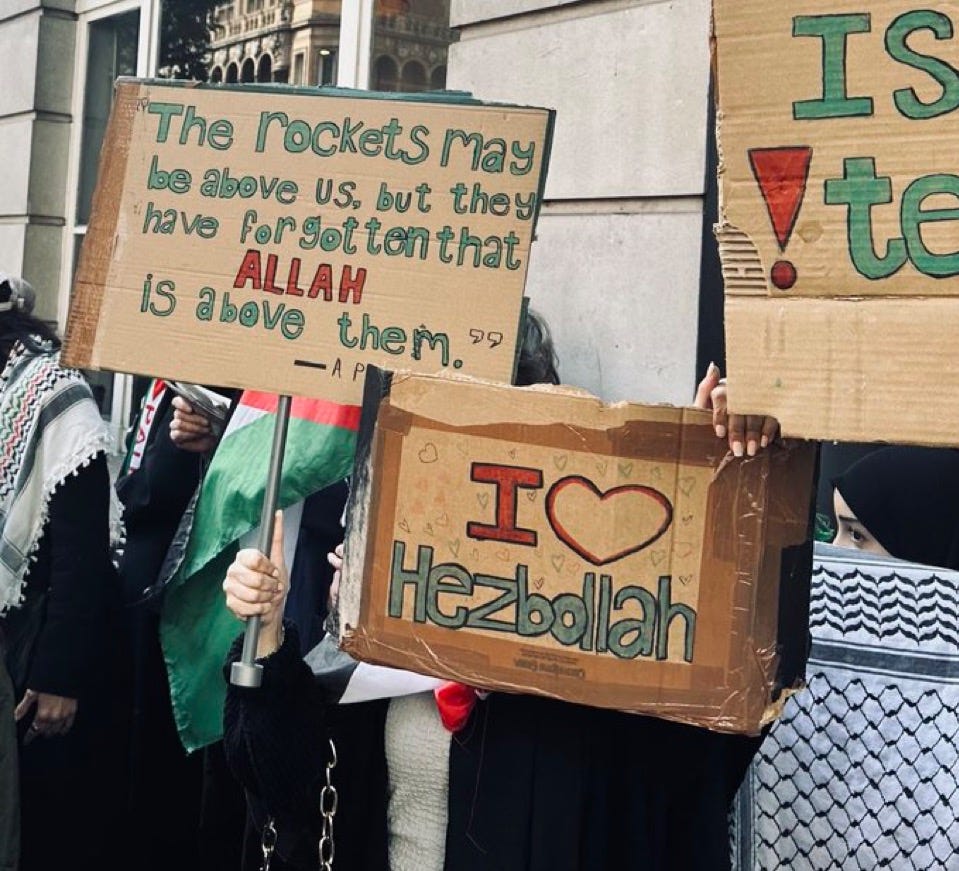 "The rockets may
be above us, but they
have forgotten that
ALLAH
is above them."
— A P
I ♡
Hezbollah
Is
! te